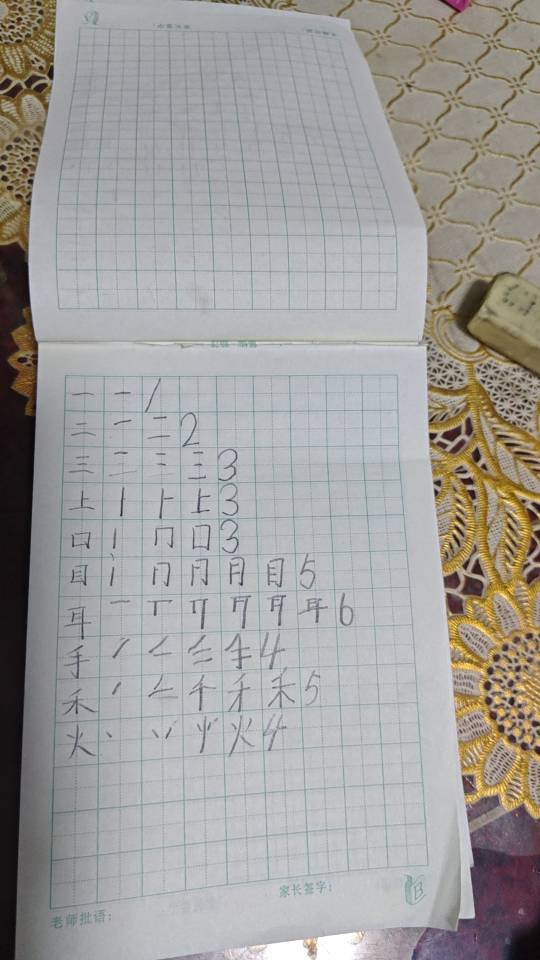 一 一 1
二 一 二 2
三 二 三 三 3
上 丨 ⺊ 上 3
口 丨 冂 口 3
目 丨 冂 月 月 目 5
耳 一 丅 耳 6
手 丿 手 4
禾 丿 千 禾 禾 5
火 丶 丷 火 4
家长签字：
老师批语：